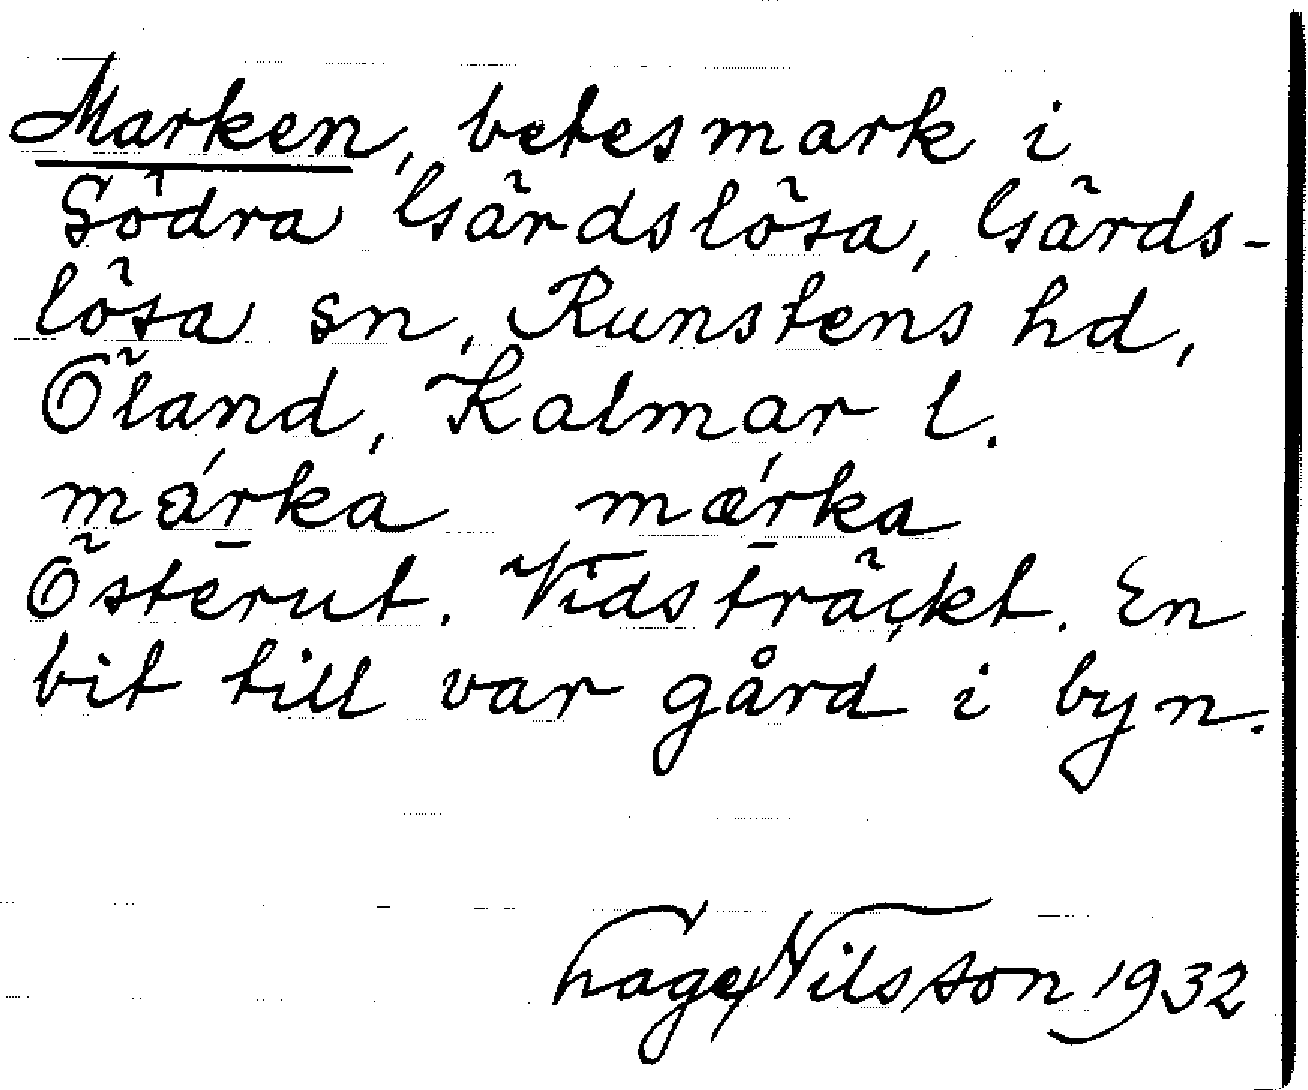 Marken, betesmark i
Södra Gärdslösa, Gärds-
lösa sn, Runstens hd,
Öland, Kalmar l.
ma̍r̠ka mæ̍r̠ka
Österut. Vidsträckt. En
bit till var gård i byn.
Hage Nilsson 1932